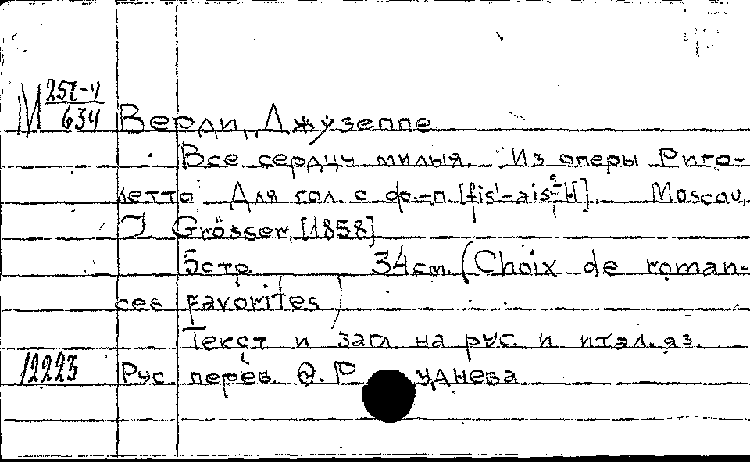 М 257-4
634
Верди, Джузеппе
Все сердцу милыя. Из оперы Риго-
летто. Для гол. с ф.-п. [fis'-ais''-H]. Moscou,
J. Grösser, [1858]
5 стр. 34 см. (Choix de roman-
ces favorites)
Текст и загл. на рус. и итал. яз.
12223
Рус. перев. Ф. Р уднева